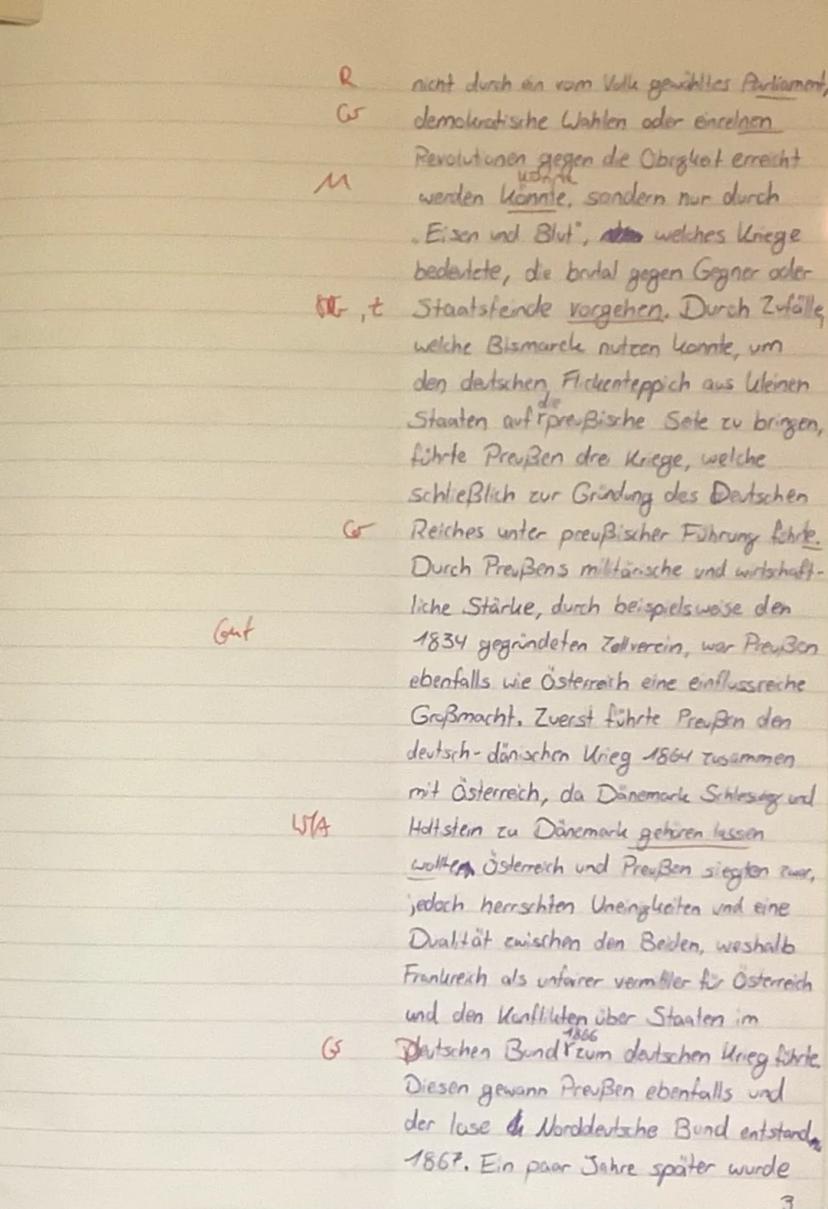 R nicht durch ein vom Volk gewähltes Parliament,
Gr demokratische Wahlen oder einzelnen
Revolutionen gegen die Obrigkeit erreicht
könne
M werden könnte, sondern nur durch
„Eisen und Blut", welches Kriege
bedeutete, die brutal gegen Gegner oder
, t Staatsfeinde vorgehen. Durch Zufälle,
welche Bismarck nutzen konnte, um
den deutschen Flickenteppich aus kleinen
die
Staaten auf preußische Seite zu bringen,
führte Preußen drei Kriege, welche
schließlich zur Gründung des Deutschen
Gr Reiches unter preußischer Führung führte.
Durch Preußens militärische und wirtschaft-
liche Stärke, durch beispielsweise den
Gut 1834 gegründeten Zollverein, war Preußen
ebenfalls wie Österreich eine einflussreiche
Großmacht. Zuerst führte Preußen den
deutsch-dänischen Krieg 1864 zusammen
mit Österreich, da Dänemark Schleswig und
W/A Holtstein zu Dänemark gehören lassen
wollten Österreich und Preußen siegten zwar,
jedoch herrschten Uneinigkeiten und eine
Dualität zwischen den Beiden, weshalb
Frankreich als unfairer vermittler für Österreich
und den Konflikten über Staaten im
1866
Gr Deutschen Bund zum deutschen Krieg führte.
Diesen gewann Preußen ebenfalls und
der lose Norddeutsche Bund entstand
1867. Ein paar Jahre später wurde
3